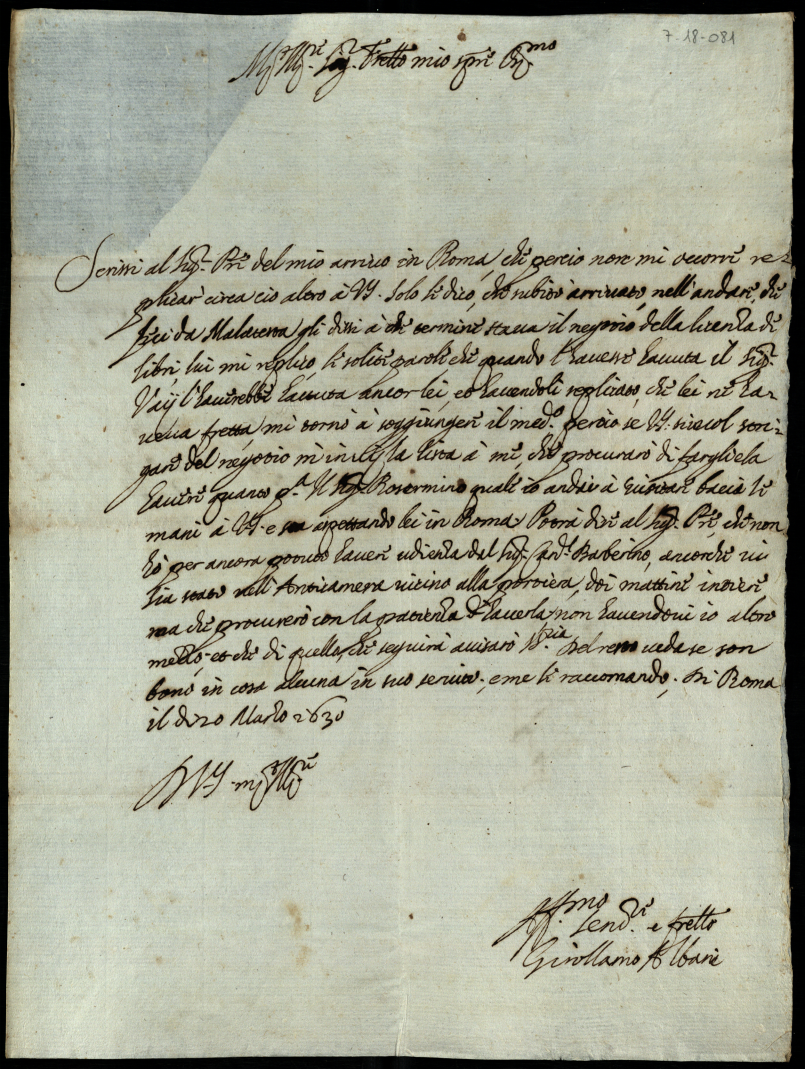 7-18-081
Mo. Illre. Sigr. fretto mio sre Ossmo
Scrissi al Sigr. Pre del mio arrivo in Roma, che percio non mi occorre re-
plicar circa cio altro à VS. solo li dico, che subito arrivato, nell'andare, che
feci da Malatesta gli dissi à che termine stava il negotio della licenza de
libri, lui mi replicò, le solite parole che quando l'havesse havuta il Sigr.
l'haverebbe havuta ancor lei, et havendoli replicato, che lei ne ha-
veva fretta, mi tornò à soggiungere il medo. percio se VS. si vuol sbri-
gare del negotio mi invii la lista à me, che procurarò di fargliela
havere quanto pa. Il Sigr. Rosermino quale io andai à visitare bacia le
mani à VS. e sta aspettando lei in Roma. Potrà dire al Sigr. Pre, che non
hò per ancora potuto havere udienza dal Sigr. Cardl. Barberino, ancorche vi
sia stato nell'Anticamera vicino alla portiera, doi mattine intiere
ma che procurerò con la patienza d'haverla, non havendovi io altro
mezzo, et che di quello, che seguirà avisarò Sria. Del resto veda se son
bono in cosa alcuna in suo servitio, e me li raccomando. Di Roma
il di 20 Marzo 1630
D VS. mo Illre
Affmo
Servre. e fretto
Girollamo Albani